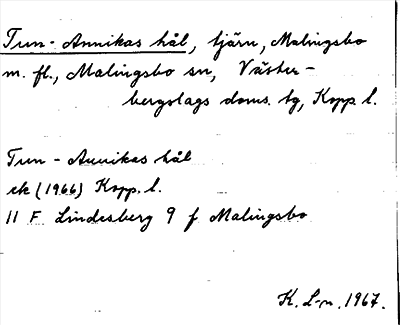 Trun-Annikas hål, tjärn, Malingsbo
m. fl., Malingsbo sn, Väster-
bergslags doms. tg, Kopp. l.
Trun - Annikas hål
ek (1966) Kopp. l.
11 F Lindesberg 9 f Malingsbo
K. L-n. 1967.